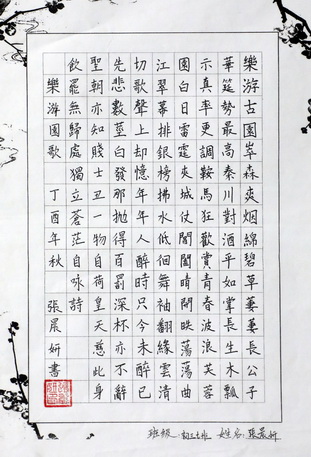 樂游古園崒森爽烟綿碧草萋萋長公子
華筵勢最高秦川對酒平如掌長生木瓢
示真率更調鞍馬狂歡賞青春波浪芙蓉
園白日雷霆夾城仗閶闔晴開昳蕩蕩曲
江翠幕排銀榜拂水低徊舞袖翻緣雲清
切歌聲上却憶年年人醉時只今未醉已
先悲數莖白發那抛得百罰深杯亦不辭
聖朝亦知賤士丑一物自荷皇天慈此身
飲罷無歸處獨立蒼茫自咏詩
樂游園歌 丁酉年秋 張晨妍書
班級:初三七班 姓名:張晨妍